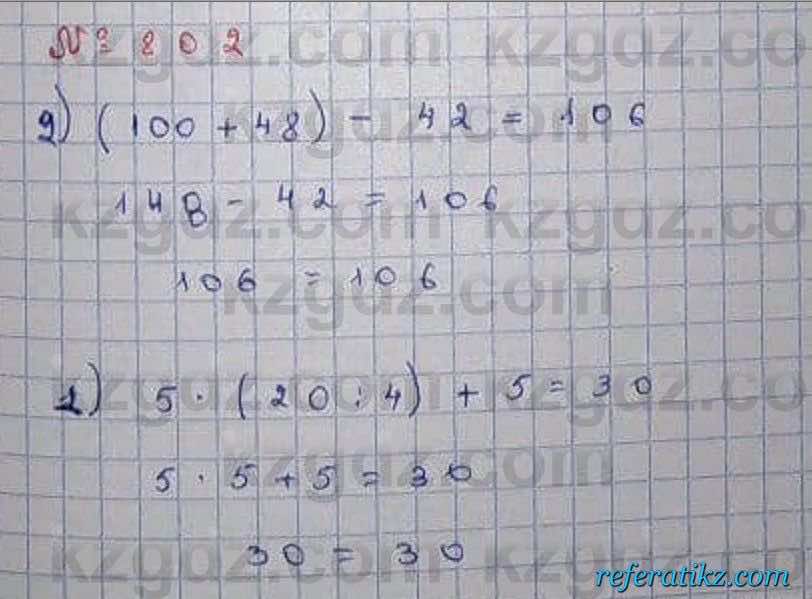 № 802
2) (100 + 48) - 42 = 106
148 - 42 = 106
106 = 106
1) 5 · (20 : 4) + 5 = 30
5 · 5 + 5 = 30
30 = 30
kzgdz.com
referatikz.com